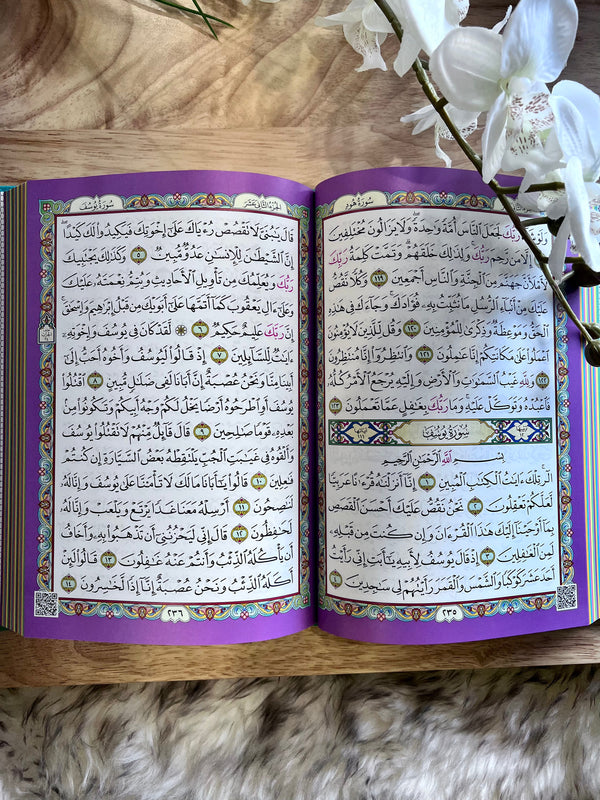 سُورَةُ هُودٍ
رَبُّكَ لَجَعَلَ ٱلنَّاسَ أُمَّةً وَٰحِدَةً ۖ وَلَا يَزَالُونَ مُخْتَلِفِينَ
إِلَّا مَن رَّحِمَ رَبُّكَ ۚ وَلِذَٰلِكَ خَلَقَهُمْ ۗ وَتَمَّتْ كَلِمَةُ رَبِّكَ
لَأَمْلَأَنَّ جَهَنَّمَ مِنَ ٱلْجِنَّةِ وَٱلنَّاسِ أَجْمَعِينَ ١١٩ وَكُلًّا نَّقُصُّ
عَلَيْكَ مِنْ أَنۢبَآءِ ٱلرُّسُلِ مَا نُثَبِّتُ بِهِۦ فُؤَادَكَ ۚ وَجَآءَكَ فِى هَٰذِهِ
ٱلْحَقُّ وَمَوْعِظَةٌ وَذِكْرَىٰ لِلْمُؤْمِنِينَ ١٢٠ وَقُل لِّلَّذِينَ لَا يُؤْمِنُونَ
ٱعْمَلُوا۟ عَلَىٰ مَكَانَتِكُمْ إِنَّا عَٰمِلُونَ ١٢١ وَٱنتَظِرُوٓا۟ إِنَّا مُنتَظِرُونَ
١٢٢ وَلِلَّهِ غَيْبُ ٱلسَّمَٰوَٰتِ وَٱلْأَرْضِ وَإِلَيْهِ يُرْجَعُ ٱلْأَمْرُ كُلُّهُۥ
فَٱعْبُدْهُ وَتَوَكَّلْ عَلَيْهِ ۚ وَمَا رَبُّكَ بِغَٰفِلٍ عَمَّا تَعْمَلُونَ ١٢٣
سُورَةُ يُوسُفَ
بِسْمِ ٱللَّهِ ٱلرَّحْمَٰنِ ٱلرَّحِيمِ
الٓر ۚ تِلْكَ ءَايَٰتُ ٱلْكِتَٰبِ ٱلْمُبِينِ ١ إِنَّآ أَنزَلْنَٰهُ قُرْءَٰنًا عَرَبِيًّا
لَّعَلَّكُمْ تَعْقِلُونَ ٢ نَحْنُ نَقُصُّ عَلَيْكَ أَحْسَنَ ٱلْقَصَصِ
بِمَآ أَوْحَيْنَآ إِلَيْكَ هَٰذَا ٱلْقُرْءَانَ وَإِن كُنتَ مِن قَبْلِهِۦ
لَمِنَ ٱلْغَٰفِلِينَ ٣ إِذْ قَالَ يُوسُفُ لِأَبِيهِ يَٰٓأَبَتِ إِنِّى رَأَيْتُ
أَحَدَ عَشَرَ كَوْكَبًا وَٱلشَّمْسَ وَٱلْقَمَرَ رَأَيْتُهُمْ لِى سَٰجِدِينَ ٤
٢٣٥
ٱلجُزْءُ ٱلثَّانِي عَشَرَ
سُورَةُ يُوسُفَ
قَالَ يَٰبُنَىَّ لَا تَقْصُصْ رُءْيَاكَ عَلَىٰٓ إِخْوَتِكَ فَيَكِيدُوا۟ لَكَ كَيْدًا ۖ
إِنَّ ٱلشَّيْطَٰنَ لِلْإِنسَٰنِ عَدُوٌّ مُّبِينٌ ٥ وَكَذَٰلِكَ يَجْتَبِيكَ
رَبُّكَ وَيُعَلِّمُكَ مِن تَأْوِيلِ ٱلْأَحَادِيثِ وَيُتِمُّ نِعْمَتَهُۥ عَلَيْكَ
وَعَلَىٰٓ ءَالِ يَعْقُوبَ كَمَآ أَتَمَّهَا عَلَىٰٓ أَبَوَيْكَ مِن قَبْلُ إِبْرَٰهِيمَ وَإِسْحَٰقَ ۚ
إِنَّ رَبَّكَ عَلِيمٌ حَكِيمٌ ٦ ۞ لَّقَدْ كَانَ فِى يُوسُفَ وَإِخْوَتِهِۦٓ
ءَايَٰتٌ لِّلسَّآئِلِينَ ٧ إِذْ قَالُوا۟ لَيُوسُفُ وَأَخُوهُ أَحَبُّ إِلَىٰٓ
أَبِينَا مِنَّا وَنَحْنُ عُصْبَةٌ إِنَّ أَبَانَا لَفِى ضَلَٰلٍ مُّبِينٍ ٨ ٱقْتُلُوا۟
يُوسُفَ أَوِ ٱطْرَحُوهُ أَرْضًا يَخْلُ لَكُمْ وَجْهُ أَبِيكُمْ وَتَكُونُوا۟ مِنۢ
بَعْدِهِۦ قَوْمًا صَٰلِحِينَ ٩ قَالَ قَآئِلٌ مِّنْهُمْ لَا تَقْتُلُوا۟ يُوسُفَ
وَأَلْقُوهُ فِى غَيَٰبَتِ ٱلْجُبِّ يَلْتَقِطْهُ بَعْضُ ٱلسَّيَّارَةِ إِن كُنتُمْ
فَٰعِلِينَ ١٠ قَالُوا۟ يَٰٓأَبَانَا مَا لَكَ لَا تَأْمَ۫نَّا عَلَىٰ يُوسُفَ وَإِنَّا لَهُۥ
لَنَٰصِحُونَ ١١ أَرْسِلْهُ مَعَنَا غَدًا يَرْتَعْ وَيَلْعَبْ وَإِنَّا لَهُۥ
لَحَٰفِظُونَ ١٢ قَالَ إِنِّى لَيَحْزُنُنِىٓ أَن تَذْهَبُوا۟ بِهِۦ وَأَخَافُ
أَن يَأْكُلَهُ ٱلذِّئْبُ وَأَنتُمْ عَنْهُ غَٰفِلُونَ ١٣ قَالُوا۟ لَئِنْ
أَكَلَهُ ٱلذِّئْبُ وَنَحْنُ عُصْبَةٌ إِنَّآ إِذًا لَّخَٰسِرُونَ ١٤
٢٣٦